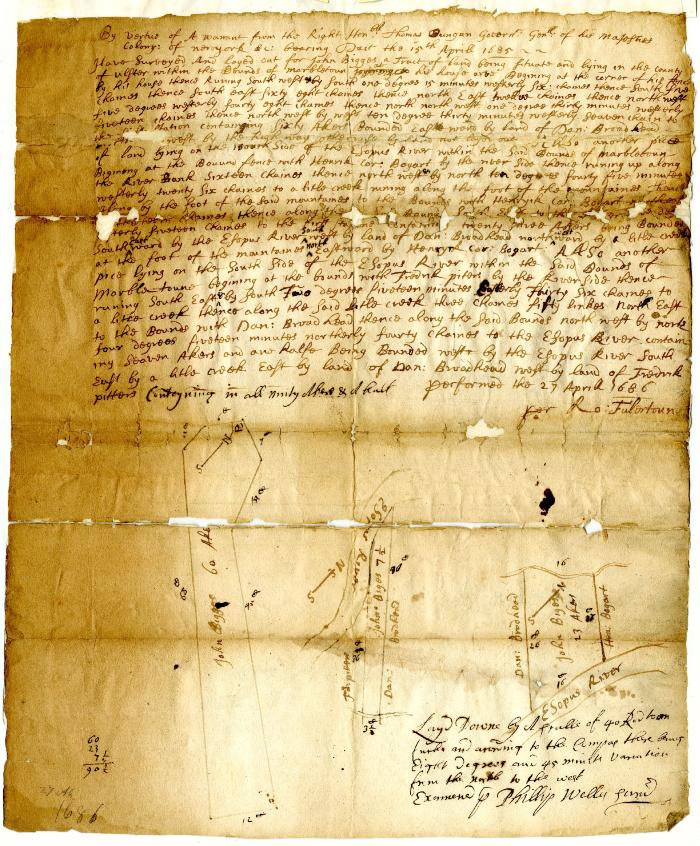 By vertue of A warrant from the Right Honbl Thomas Dungan Governr Genrl of his Majesties
Colony: of neweyork &c: bearing Date the 15th April 1685
Have Surveyed And Layed out for John Bigges a Tract of Land being situate and lying in the county
of ulster within the Bounds of marbletowne his house over Begining at the corner of his
by his house thence runing South west & by South one degree 15 minutes westerly Six: chaines thence South five
chaines thence south east Sixty eight chaines thence north east twelve chaines thence north west
five degrees westerly fourty eight chaines thence north north west one degree thirty minutes west
fiveteen chaines thence north west by west ten degree thirty minutes westerly Seaven chain to
the station containing Sixty Akers Bounded Eastward by Land of Dan: Brodhead
west Also another pice
of land lying on the north Side of the Esopus River within the Said Bounds of marbletown
Begining at the Bound fence with Henrik Cor: Bogart by the river Side thence runing along
the River Bank Sixteen chaines thence north west by north ten degrees fourty five minutes
westerly twenty Six chaines to a litle creek runing along the foot of the mountaines thence
along by the foot of the Said mountaines to the Bounds with Henryck Cor: Bogart
thence along the Bound to the
terly fiveteen Chaines to the first containing twenty three Akers being Bounded
Southward by the Esopus River South west by land of Dan: Brodhead northward by a litle creek
at the foot of the mountain north Eastward by Henryck Cor: Bogart Also another
pice lying on the South Side of the Esopus River within the Said Bounds of
Marble towne begining at the bounds with Fredrik piters by the River Side thence
runing South East by South Two degrees fiveteen minutes Easterly Fourty Six chaines to
a litle creek thence along the Said litle creek three chaines fifty linkes north East
to the Bounds with Dan: Broadhead thence along the Said Bounds north west by north
four degrees fiveteen minutes northerly fourty Chaines to the Esopus River contain
ing Seaven Akers and ane halfe Being Bounded west by the Esopus River South
East by a litle creek East by land of Dan: Broadhead west by land of Fredrik
pitters Conteyning in all ninty Akers & A halfe Performed the 27 April 1686
per Ro: Fullertoun
John Bigges 60 Akers
Esopus River
John Biges 7½
Dan: Brodhead
16
Dan: Brodhead
John Biges
23 Akers
Hen: Bogart
Esopus River
Layd Downe by A Scalle of 40 Rod to an
Inche and according to the Compas there being
Eight degrees and 45 minits Variation
from the north to the west
Examened p Phillip Welles Survr
60
23
7½
90½
12
1686